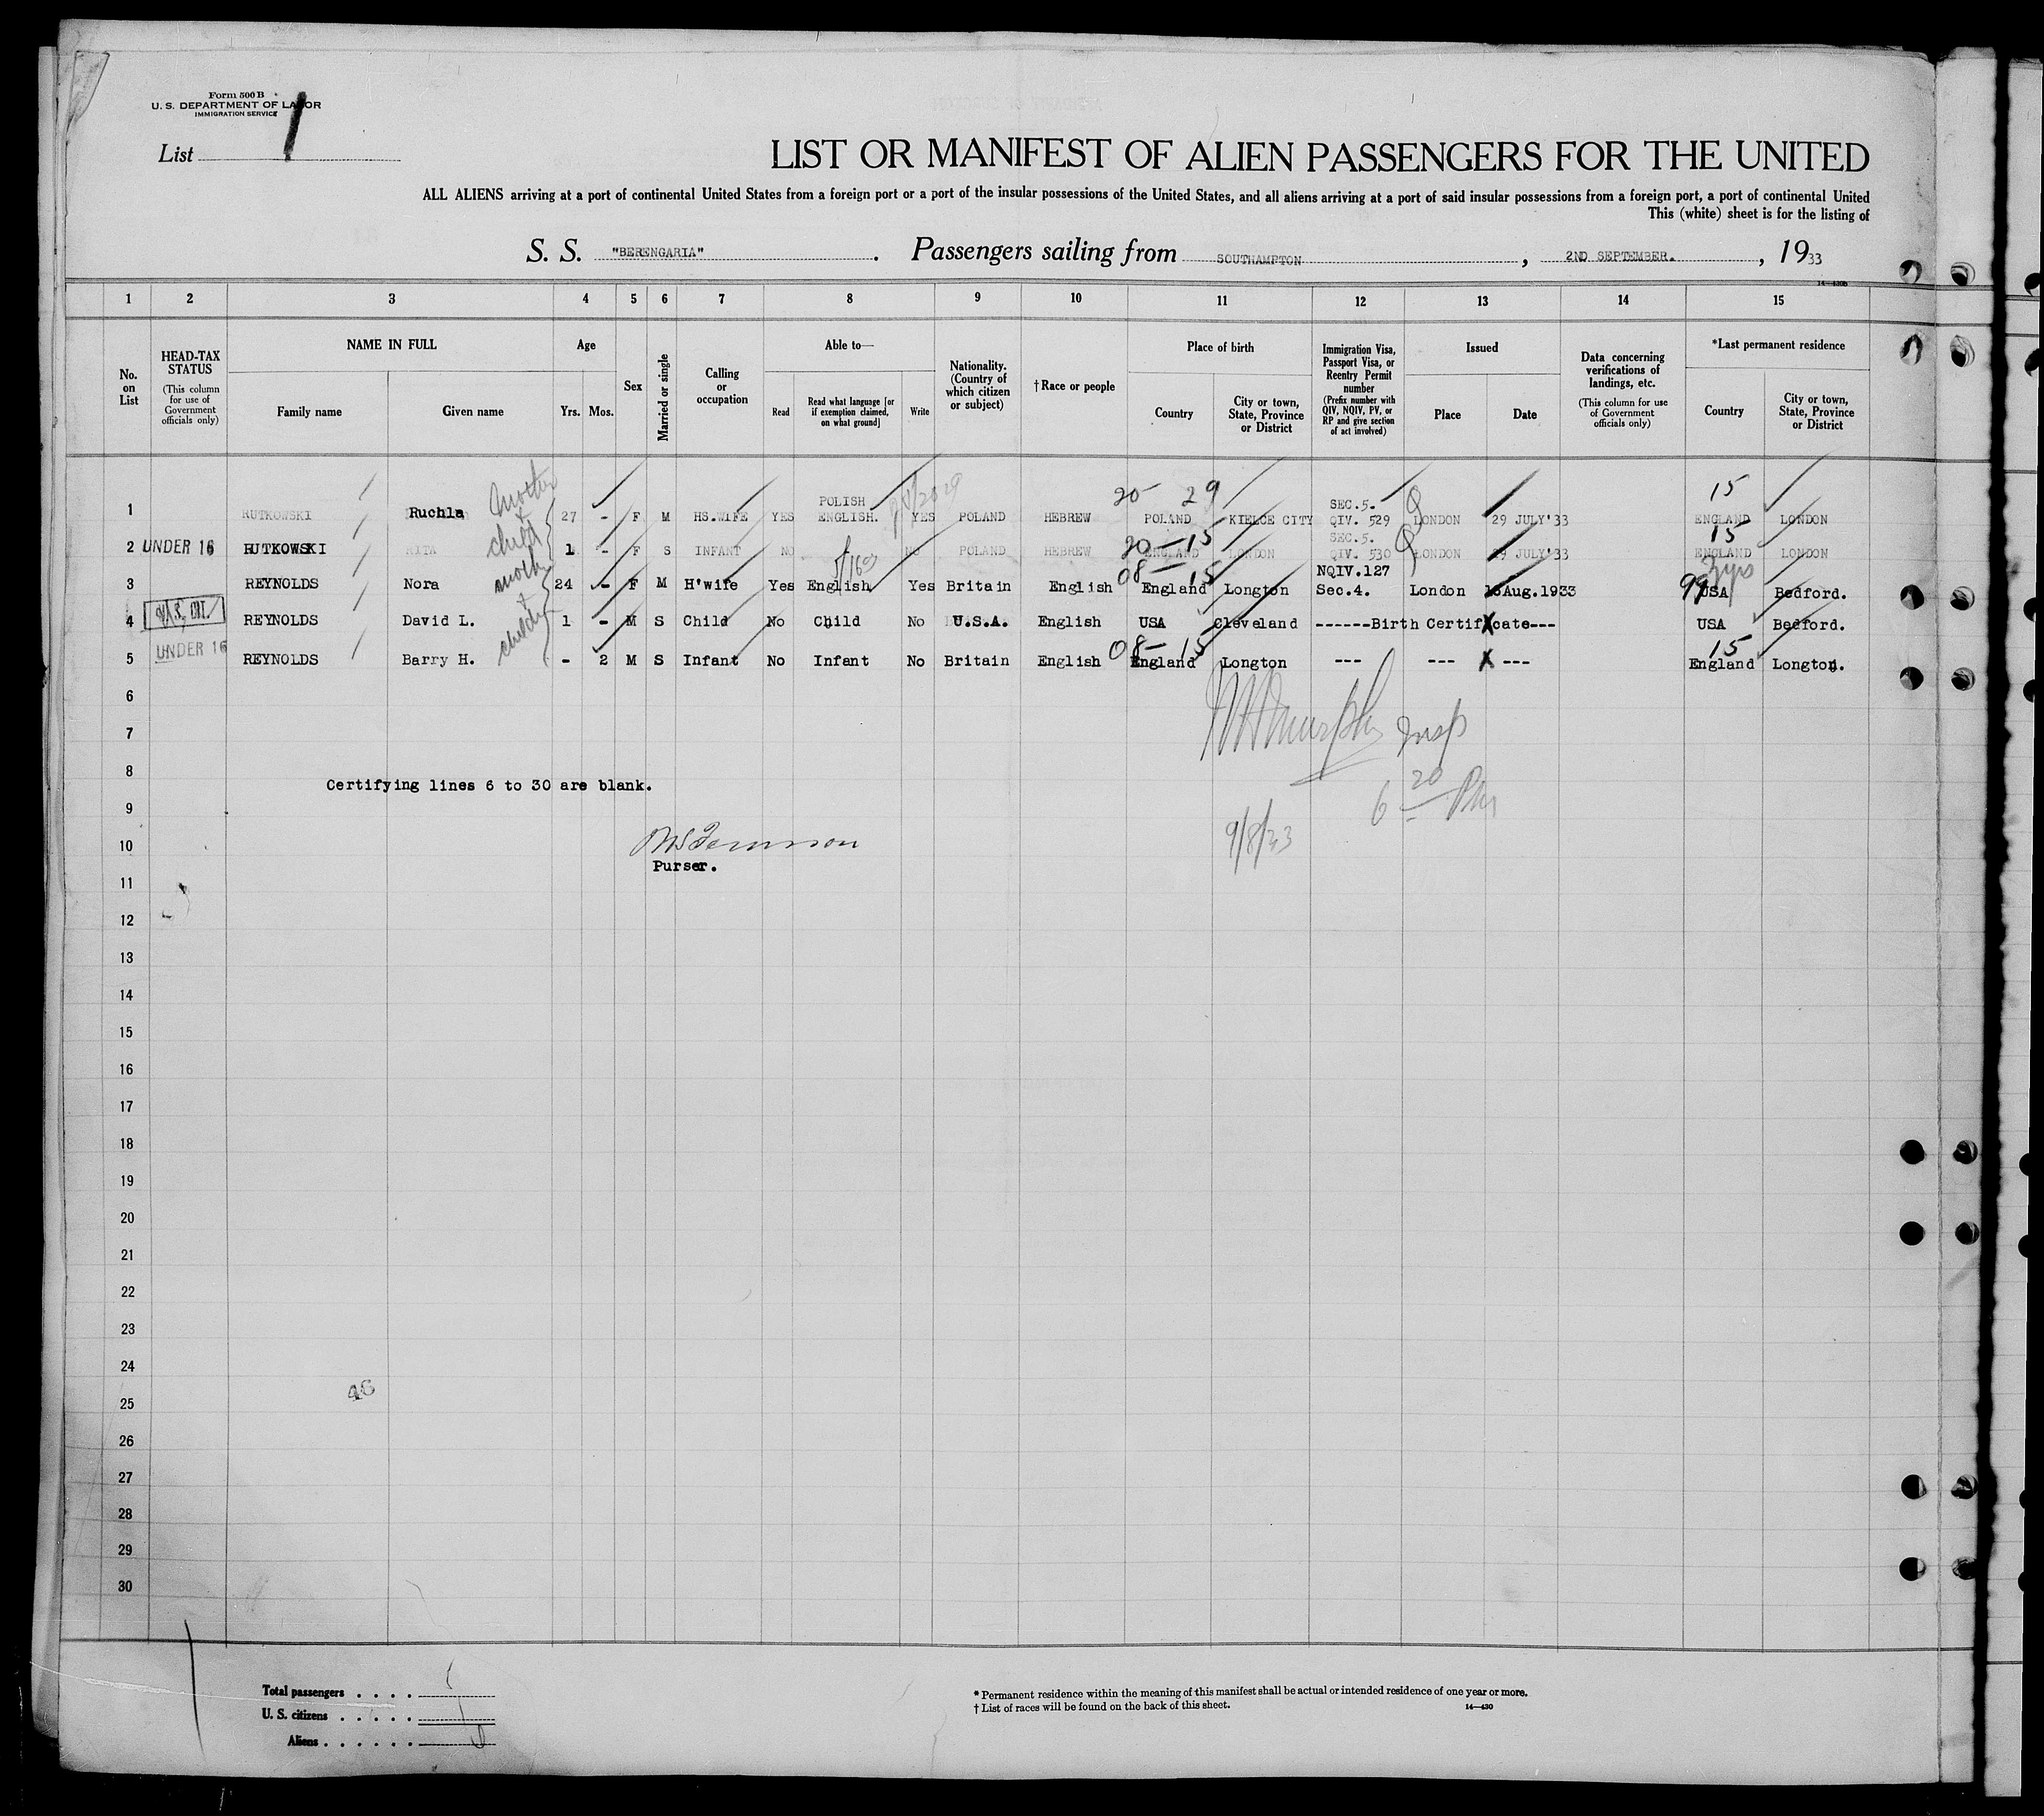 Form 500 B
U. S. DEPARTMENT OF LABOR
IMMIGRATION SERVICE
List 1
LIST OR MANIFEST OF ALIEN PASSENGERS FOR THE UNITED
ALL ALIENS arriving at a port of continental United States from a foreign port or a port of the insular possessions of the United States, and all aliens arriving at a port of said insular possessions from a foreign port, a port of continental United
This (white) sheet is for the listing of
S. S. "BERENGARIA" . Passengers sailing from SOUTHAMPTON , 2ND SEPTEMBER. , 1933
14—430B
1 2 3 4 5 6 7 8 9 10 11 12 13 14 15
No. on List
HEAD-TAX STATUS (This column for use of Government officials only)
NAME IN FULL
Family name Given name
Age
Yrs. Mos.
Sex
Married or single
Calling or occupation
Able to—
Read Read what language [or if exemption claimed, on what ground] Write
Nationality. (Country of which citizen or subject)
†Race or people
Place of birth
Country City or town, State, Province or District
Immigration Visa, Passport Visa, or Reentry Permit number (Prefix number with QIV, NQIV, PV, or RP and give section of act involved)
Issued
Place Date
Data concerning verifications of landings, etc. (This column for use of Government officials only)
*Last permanent residence
Country City or town, State, Province or District
mother
20 29 15
POLISH SEC.5.
1 RUTKOWSKI Ruchla 27 - F M HS.WIFE YES ENGLISH. YES POLAND HEBREW POLAND KIELCE CITY QIV. 529 LONDON 29 JULY'33 ENGLAND LONDON
child
20—15 SEC.5. 15
2 UNDER 16 RUTKOWSKI RITA 1 - F S INFANT NO NO POLAND HEBREW ENGLAND LONDON QIV. 530 LONDON 29 JULY'33 ENGLAND LONDON
mother
08—15 NQIV.127 99
3 REYNOLDS Nora 24 - F M H'wife Yes English Yes Britain English England Longton Sec.4. London Aug.1933 USA Bedford.
4 REYNOLDS David L. 1 - M S Child No Child No U.S.A. English USA Cleveland ------Birth Certificate--- USA Bedford.
08—15 15
5 UNDER 16 REYNOLDS Barry H. - 2 M S Infant No Infant No Britain English England Longton --- --- X --- England Longton.
6
7
Murphy Insp
8
Certifying lines 6 to 30 are blank.
6 20 PM
9
9/8/33
10
Purser.
11
12
13
14
15
16
17
18
19
20
21
22
23
24
46
25
26
27
28
29
30
Total passengers . . . .
U. S. citizens . . . . .
Aliens . . . . . .
* Permanent residence within the meaning of this manifest shall be actual or intended residence of one year or more.
† List of races will be found on the back of this sheet.
14—430